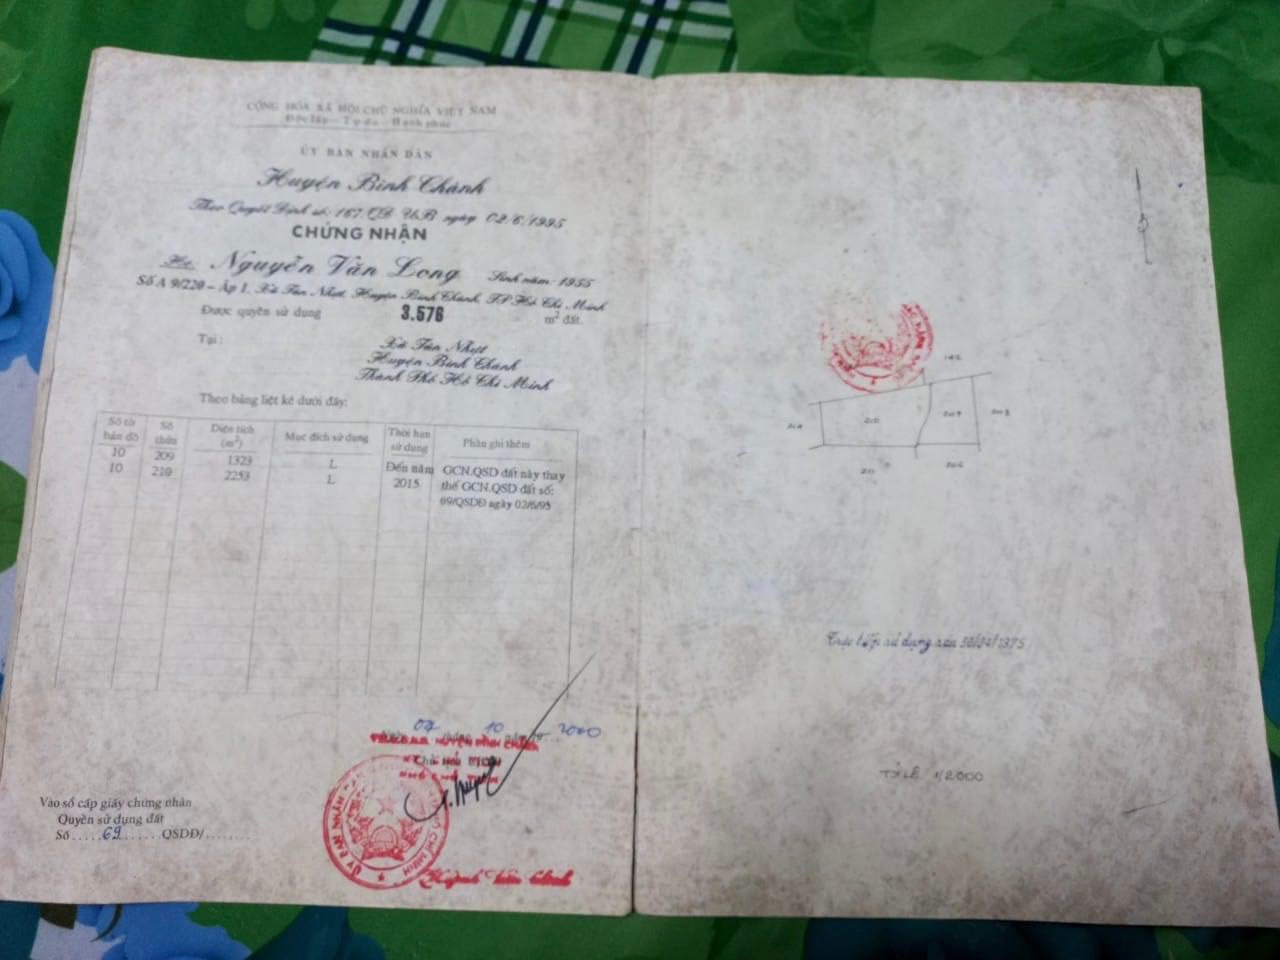 CỘNG HÒA XÃ HỘI CHỦ NGHĨA VIỆT NAM
Độc lập - Tự do - Hạnh phúc
ỦY BAN NHÂN DÂN
Huyện Bình Chánh
Theo Quyết Định số: 167/QĐ UB ngày 02/6/1995
CHỨNG NHẬN
Hộ: Nguyễn Văn Long Sinh năm 1955
Số A 9/220 - Ấp 1, Xã Tân Nhựt, Huyện Bình Chánh, TP Hồ Chí Minh
Được quyền sử dụng 3.576 m² đất.
Tại: Xã Tân Nhựt
Huyện Bình Chánh
Thành Phố Hồ Chí Minh
Theo bảng liệt kê dưới đây:
Số tờ bản đồ Số thửa Diện tích (m²) Mục đích sử dụng Thời hạn sử dụng Phần ghi thêm
10 209 1323 L Đến năm GCN.QSD đất này thay
10 210 2253 L 2015 thế GCN.QSD đất số:
69/QSDĐ ngày 02/6/95
07 10 2000
TM.U.B.N.D HUYỆN BÌNH CHÁNH
ỦY BAN NHÂN
HỒ CHÍ MINH
Vào sổ cấp giấy chứng nhận
Quyền sử dụng đất
Số.....69.......QSDĐ/........
142
204
210
209
208
211
206
Trực tiếp sử dụng sau 30/04/1975
TỈ LỆ 1/2000